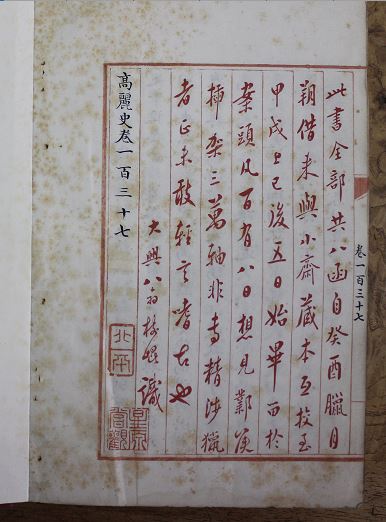 卷一百三十七
此書全部共八函自癸酉臘月
朔借來與小齋藏本互校至
甲戌上巳後五日始畢留於
案頭凡百有八日想見鄴侯
插架三萬軸非專精涉獵
者正未敢輕言嗜古也
大興八識
高麗史卷一百三十七
北平